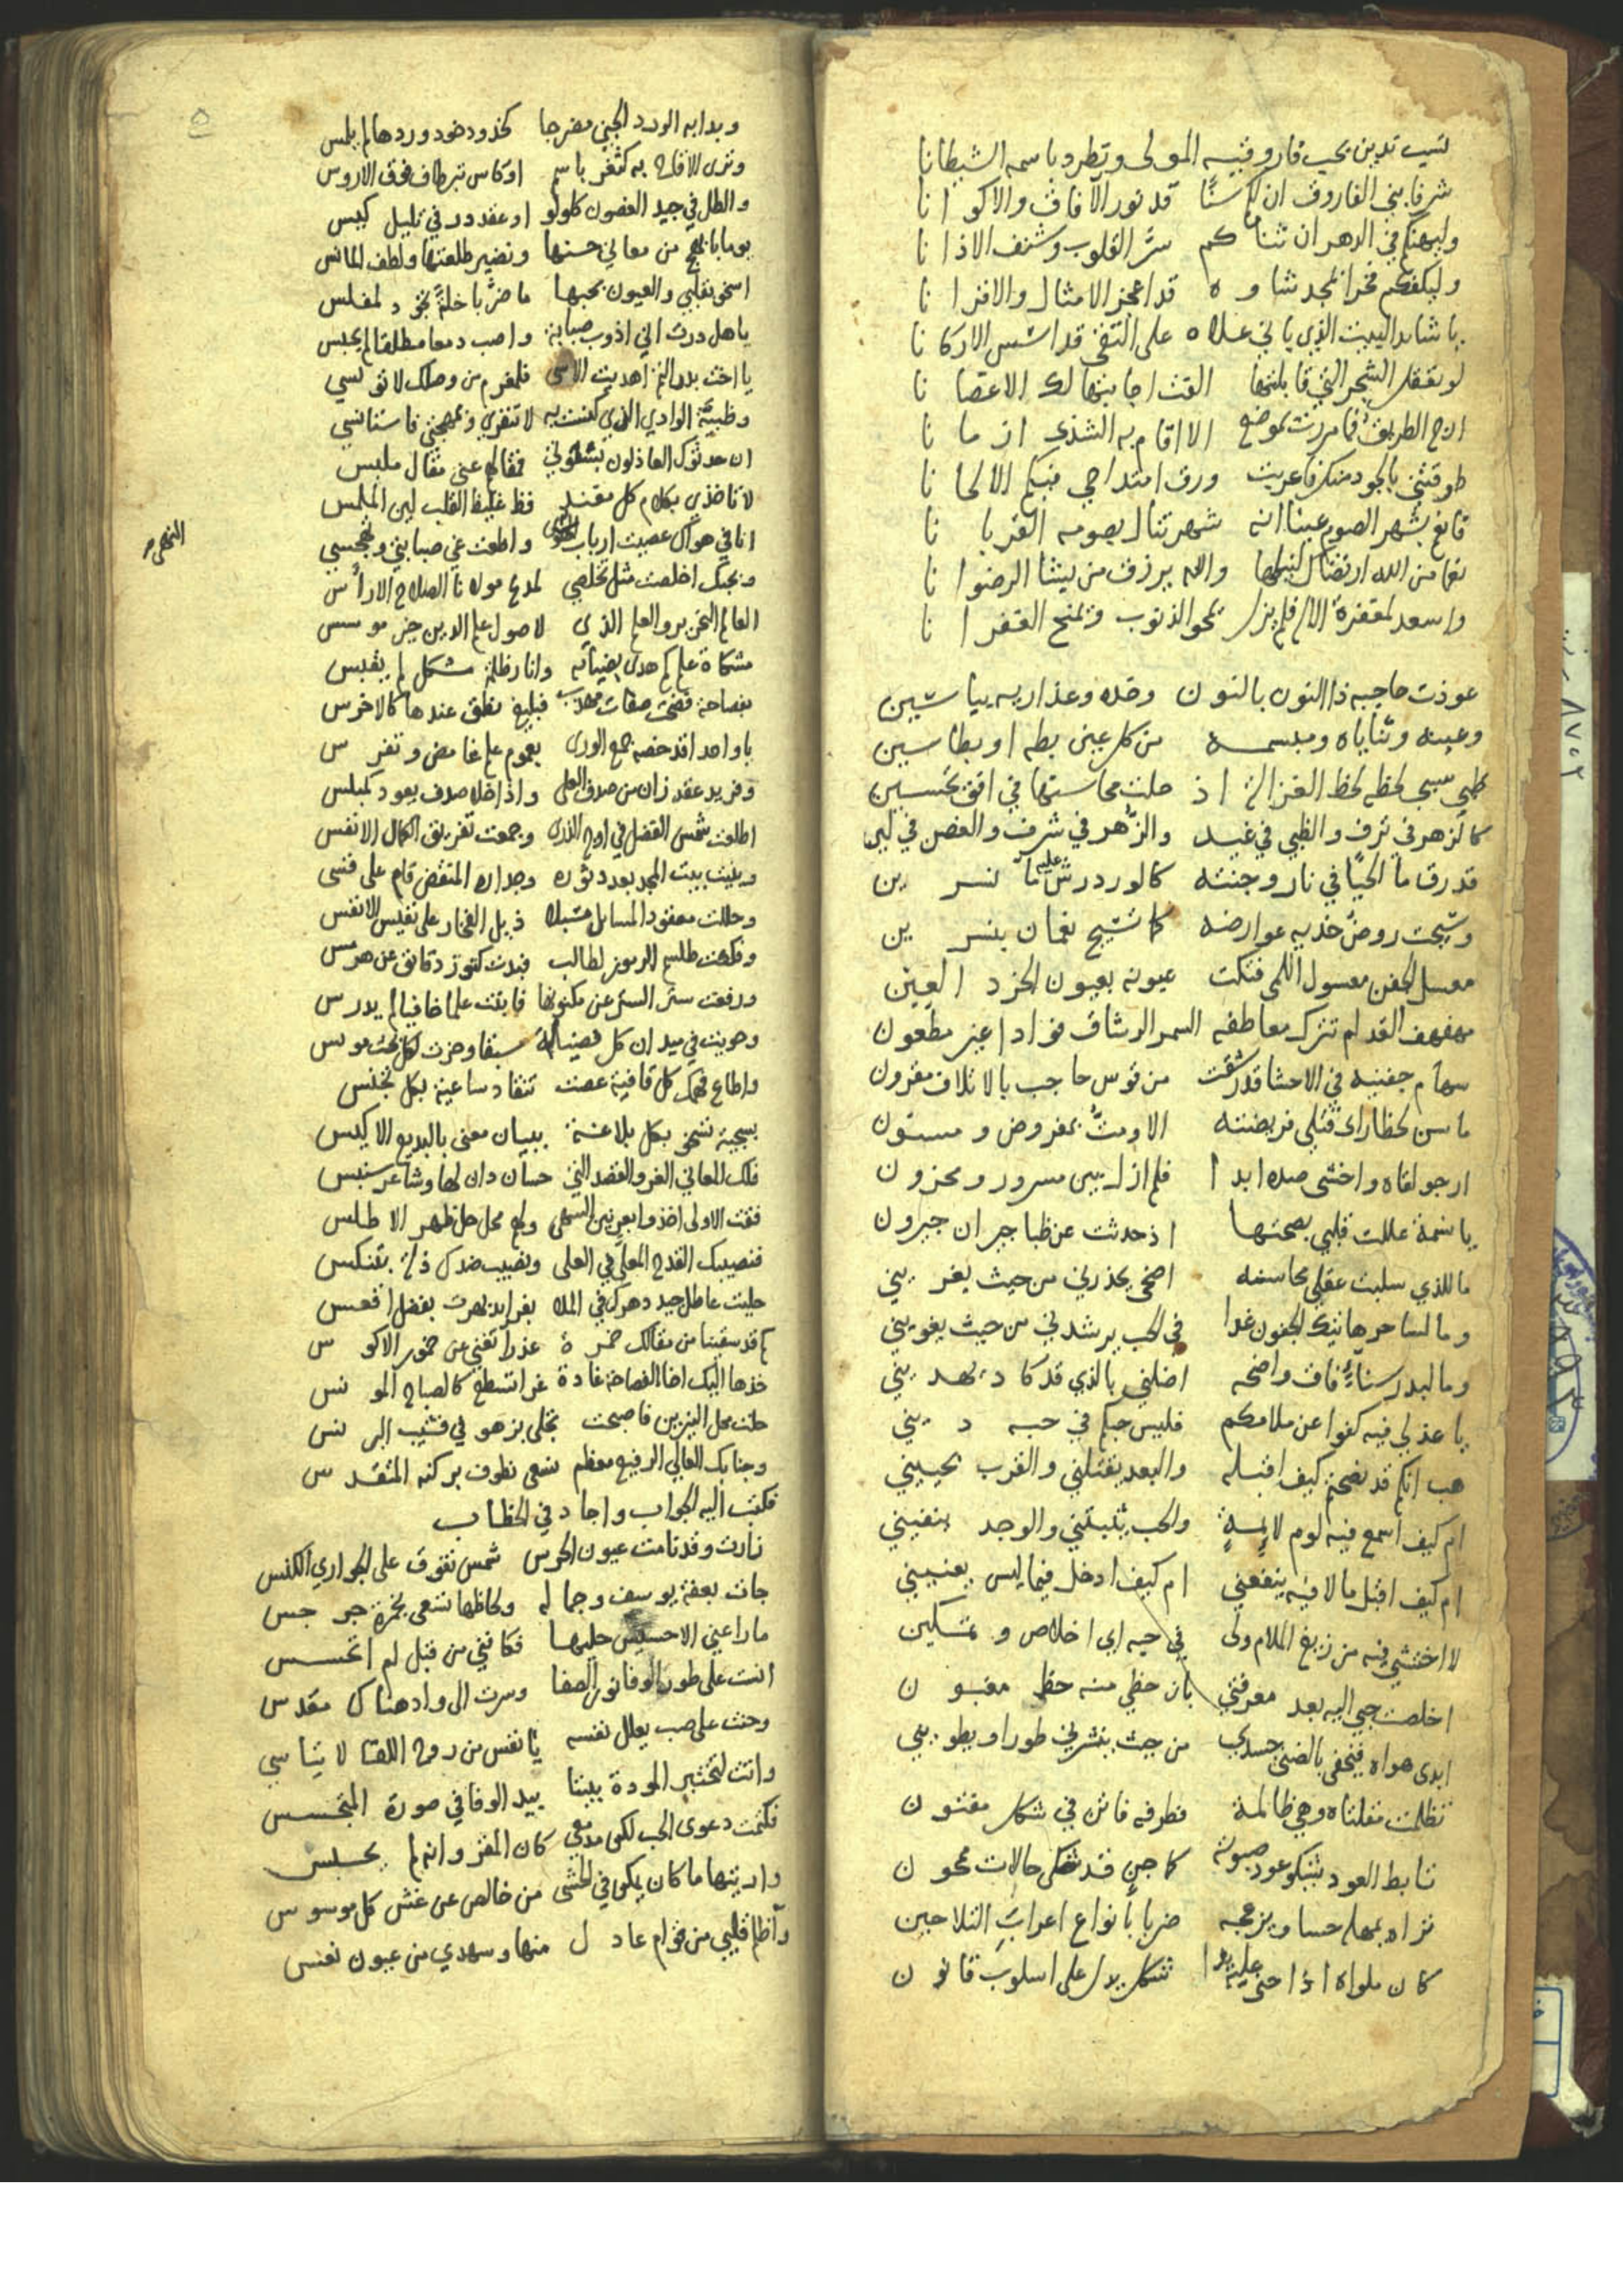 نسب تدين بحب فاروقيه المولى وتطرد باسمه الشيطانا
شرفا بني الفاروق ان لكم سنًا قد نور الآفاق والاكوانا
وليهنكم في الدهر ان ثناكم سرَّ القلوب وشنف الاذانا
وليكفكم فخرا لمجد شاوه قد اعجز الامثال والاقرانا
يا شايد البيت الذي باني علاه على التقى قد اسس الاركانا
لو تعقل الشجر التي قابلتها القت اجابتها لك الاغصانا
ارج الطريق فما مررت بموضع الا اقام به الشذى ازمانا
طوقتني بالجود منك فاعربت ورق امتداحي فيكم الالحانا
فانغ بشهر الصوم عينا انه شهر تنال بصومه القربانا
نعما من الله ارتضاك لنيلها والله يرزق من يشا الرضوانا
واسعد بمغفرة الاله فلم يزل يمحو الذنوب ويمنح الغفرانا
عوذت حاجبه ذا النون بالنون وخده وعذاريه بياسين
وعينه وثناياه ومبسمه من كل عين بطه او بطاسين
ظبي سبى لحظه لحظ الغزالة اذ حلت محاسنها في افق تحسين
كالزهر في ترف والظبي في غيد والزُّهر في شرف والغصن في لين
قد رق ما الحيا في نار وجنته كالورد رش عليه ما نسرين
وسيجت روض خديه عوارضه كما تسيج نعمان بنسرين
معسل الجفن معسول اللمى فتكت عيونه بعيون الخرد العين
مهفهف القد لم تترك معاطفه السمر الرشاق فوادا غير مطعون
سهام جفنيه في الاحشا قد رشقت من قوس حاجب بالاتلاف مقرون
ما سن لحظا راى قتلي فريضته الا ومتُّ بمفروض ومسنون
ارجو لقاه واخشى صده ابدا فلم ازل بين مسرور ومحزون
يا نسمة عللت قلبي بصحتها اذ حدثت عن ظبا جيران جيرون
ما للذي سلبت عقلي محاسنه اضحى يحذرني من حيث يغريني
وما لساحر هاتيك الجفون غدا في الحب يرشدني من حيث يغويني
وما لبدر سناءً فاق واضحه اضلني بالذي قد كاد يهديني
يا عذلي فيه كفوا عن ملامكم فليس حبكم في حبه ديني
هب انكم قد نصحتم كيف اقبله والبعد يقتلني والقرب يحييني
ام كيف اسمع فيه لوم لايمةٍ والحب يثبتني والوجد ينفيني
ام كيف اقبل مالا فيه ينفعني ام كيف ادخل فيما ليس يعنيني
لا اختشي فيه من زيغ الملام ولى في حبه اي اخلاص وتمسكين
اخلصت حبي اليه بعد معرفتي بان حظي منه حظ مغبون
ابدى هواه فيخفى بالضنى جسدي من حيث ينشرني طورا ويطويني
تظلمت مقلتاه وهي ظالمة فطرفه فاتن في شكل مفتون
تابط العود يشكو عود صبوته كما جن قد شكى حالات محون
تراه يمهله حسا ويزعجه ضربا بانواع اعراب التلاحين
كان ملواه اذا حنى عليه يدا شكل يدل على اسلوب قانون
٥
وبدا به الورد الجني مضرجا كخدود خود وردها لم يلمس
وترى الاقاح به كثغر باسم او كاس تبر طاف فوق الاروس
والطل في جيد الغصون كلولو او عقد در في تليل كيس
يوما بابهج من معالي حسنها ونضير طلعتها ولطف المانس
اسخو بقلبي والعيون بحبها ما ضر باخلة تجود لمفلس
يا هل درت اني اذوب صبابة واصب دمعا مطلقا لم يحبس
يا اخت بدر التم اهديت الاسى فلمغرم من وصلك لا توسي
وظبية الوادي الذي كنست به لا تنفري وبمهجتي فاستانسي
ان حدثوك العاذلون بسلوتي فمقالهم عني مقال ملبس
لا تاخذي بكلام كل مفند فظ غليظ القلب لين الملمس
انا في هواك عصيت ارباب النهى واطعت غي صبابتي وتهجسي
النهى صح
وبحبك اخلصت مثل تخلصي لمدح مولانا الصلاح الارأس
العالم النحرير والعلم الذي لاصول علم الدين خير موسس
مشكاة علم كم هدى بضيائه وانار ظلمة مشكل لم يقبس
بفصاحة فضحت صفات مهذب فبليغ نطق عندها كالاخرس
يا واحدا قد خصه جمع الورى بعموم علم غامض وتفرس
وفريد عقد زان من صدف العلى واذا خلا صدف يعود كمبلس
اطلعت شمس الفضل في اوج الذرى وجمعت تفريق الكمال الانفس
وبنيت بيت المجد بعد دثوره وجداره المنقض قام على فسى
وحللت معقود المسايل مسبلا ذيل الفخار على نفيس الانفس
وفككت طلسم الرموز لطالب فبدت كنوز دقائق عن هرمس
ورفعت ستر الستر عن مكنونها فابنت علما خافيا لم يدرس
وحويت في ميدان كل فضيلة سبقا وحزت لكل بحث مونس
واطاع فهمك كل قافية عصت تنقاد ساعية بكل تجنس
بسجية تسخو بكل بلاغة ببيان معنى بالبديع الاكيس
فلك المعاني الغر والعقد التي حسان دان لها وشاعر سنبس
ففت الاولى اخذوا بعرنين السهى ولهم محل حل ظهر الاطلس
فنصيبك القدح المعلى في العلى ونصيب ضدك ذلة بتنكس
حليت عاطل جيد دهرك في الملا بفرايد بهرت بفضل اقعس
كم قد سقيتنا من مقالك خمرة عذرا تغني عن خمور الاكوس
خذها اليك اخا الفصاحة غادة غرا تسطع كالصباح المونس
حلت محل النيرين فاصبحت تجلى بزهو في قشيب البرنس
وجنابك العالي الرفيع معظم نسعى نطوف بركنه المتقدس
فكتب اليه الجواب واجاد في الخطاب
زارت وقد نامت عيون الحرس شمس تفوق على الجواري الكنس
جات بعفة يوسف وجماله ولحاظها تسعى بخمرة جرجس
ما راعني الا حسيس حليها فكانني من قبل لم اتحسس
انست على طور الوفا نور الصفا وسرت الى واد هناك مقدس
وحنت على صب يعلل نفسه يا نفس من روح اللقا لا تياسي
واتت لتختبر المودة بيننا بيد الوفا في صورة المتجسس
فكتمت دعوى الحب لكن مدمعي كان المقر وانه لم يحبس
واريتها ما كان يكمن في الحشى من خالص عن غش كل موسوس
واظلم قلبي من قوام عادل منها وسهدي من عيون نعس